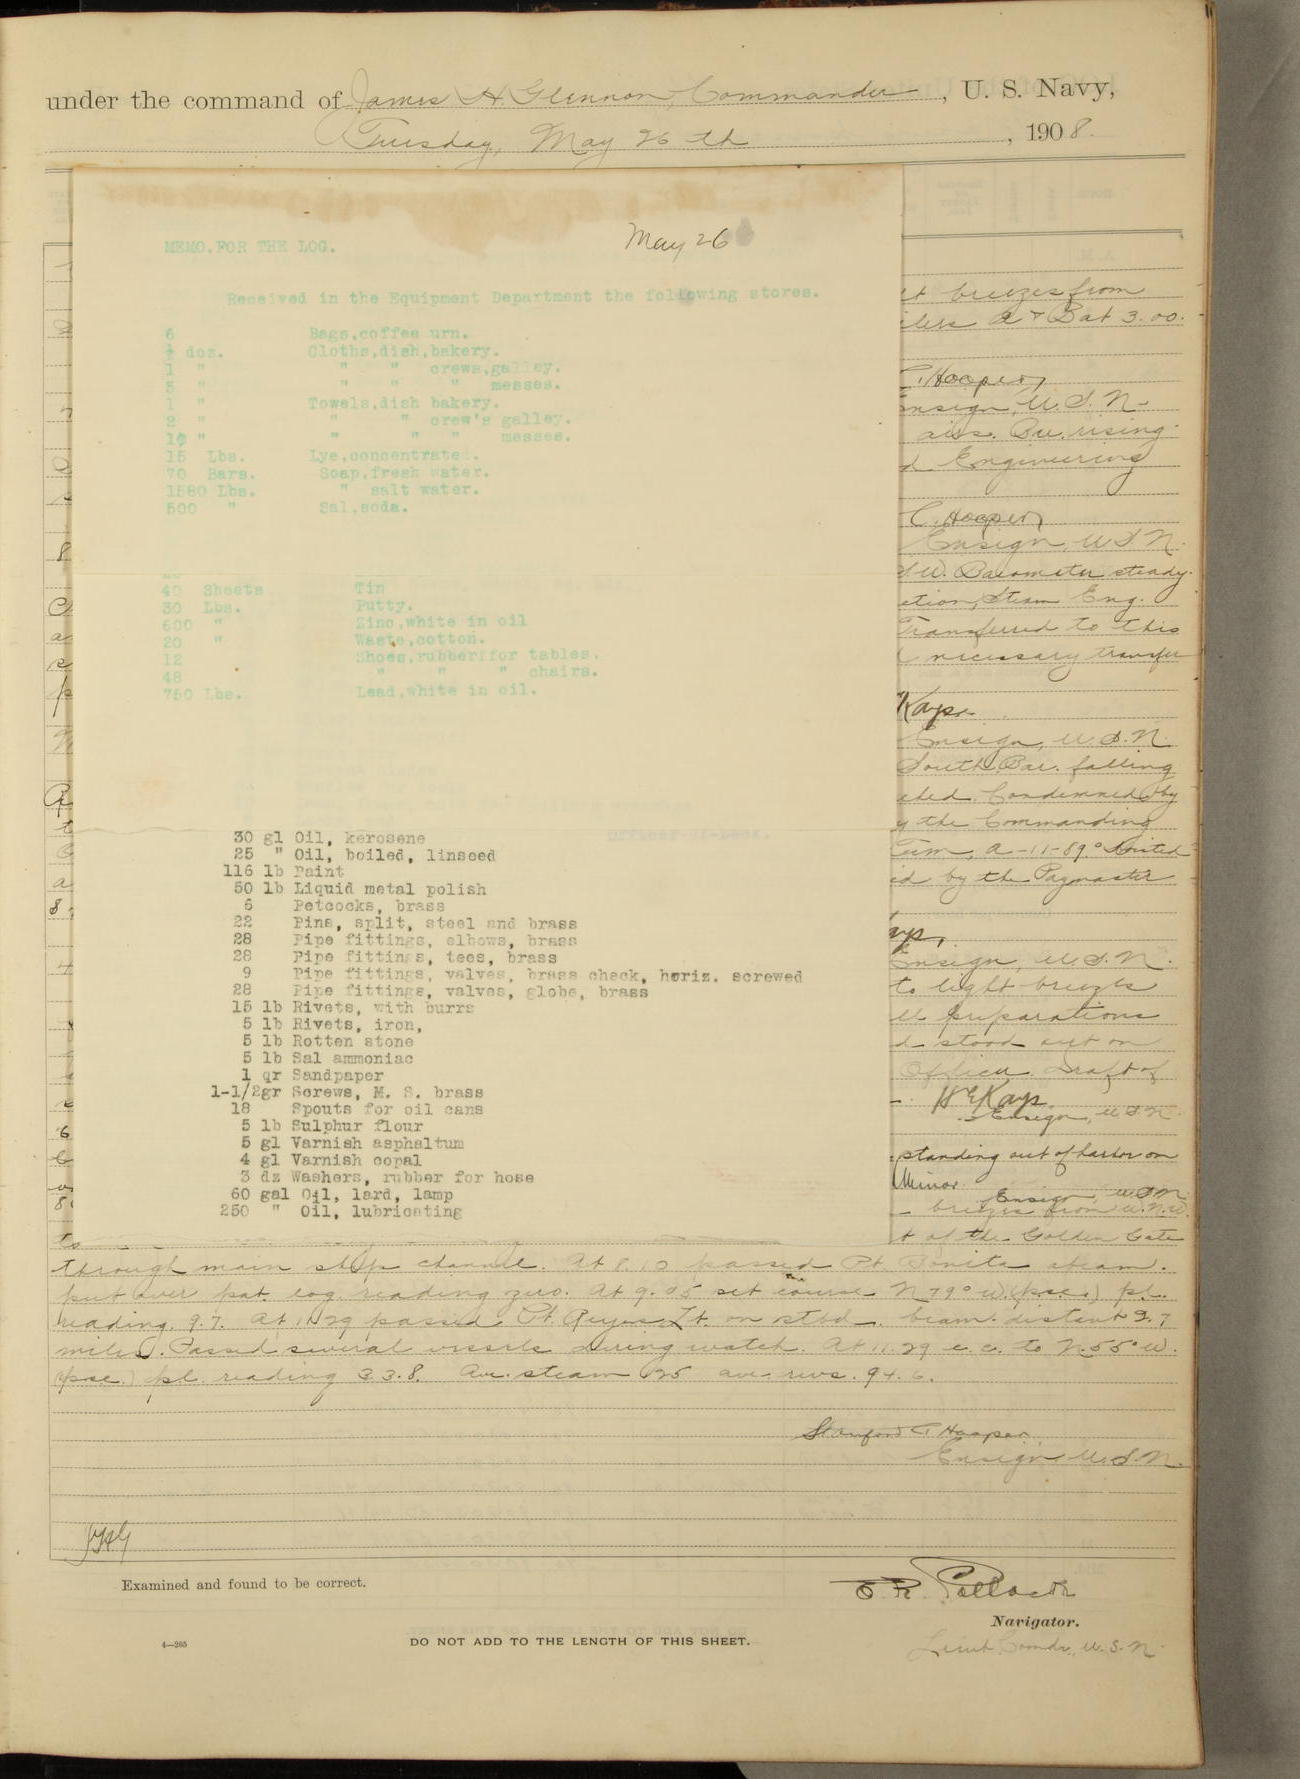 under the command of James H. Glennon, Commander, U. S. Navy,
Tuesday, May 26th, 1908.
MEMO.FOR THE LOG. May 26
Received in the Equipment Department the following stores.
6 Bags,coffee urn.
½ doz. Cloths,dish,bakery.
1 " " " crews,galley.
5 " " " " messes.
1 " Towels,dish bakery.
2 " " " crew's galley.
10 " " " " messes.
15 Lbs. Lye,concentrated.
70 Bars. Soap,fresh water.
1580 Lbs. " salt water.
500 " Sal,soda.
40 Sheets Tin
30 Lbs. Putty.
600 " Zinc,white in oil
20 " Waste,cotton.
12 Shoes,rubber for tables.
48 " " " chairs.
750 Lbs. Lead,white in oil.
30 gl Oil, kerosene
25 " Oil, boiled, linseed
116 lb Paint
50 lb Liquid metal polish
6 Petcocks, brass
22 Pins, split, steel and brass
28 Pipe fittings, elbows, brass
28 Pipe fittings, tees, brass
9 Pipe fittings, valves, brass check, horiz. screwed
28 Pipe fittings, valves, globe, brass
15 lb Rivets, with burrs
5 lb Rivets, iron,
5 lb Rotten stone
5 lb Sal ammoniac
1 qr Sandpaper
1-1/2gr Screws, M. S. brass
18 Spouts for oil cans
5 lb Sulphur flour
5 gl Varnish asphaltum
4 gl Varnish copal
3 dz Washers, rubber for hose
60 gal Oil, lard, lamp
250 " Oil, lubricating
breezes from
& B at 3.00.
Hooper,
Ensign, U.S.N.
airs. Bar. rising.
Engineering
C. Hooper,
Ensign, U.S.N.
S.W. Barometer steady.
Steam Eng.
Transferred to this
necessary transfer
Kays.
Ensign, U.S.N.
South. Bar. falling
Condemned by
the Commanding
A-11-89.
by the Paymaster
Ensign, U.S.N.
to light breezes
preparations
stood out on
Officer. Draft of
H E Kays.
Ensign, U.S.N.
standing out of harbor on
Minor
Ensign, U.S.N.
breezes from W.N.W.
of the Golden Gate
through main ship channel. At 8.10 passed Pt. Bonita abeam.
put over pat. log reading zero. At 9.05 set course N 79° W. (psc.) pl.
reading 9.7. At 11.29 passed Pt. Reyes Lt. on stbd. beam distant 2.7
miles. Passed several vessels during watch. At 11.29 c.c. to N.55° W.
(psc.) pl. reading 33.8. Av. steam 125 ave. revs. 94.6.
Stanford C Hooper
Ensign U.S.N.
JHG
Examined and found to be correct.
E. R. Pollock
Navigator.
Lieut. Comdr., U.S.N.
4—265
DO NOT ADD TO THE LENGTH OF THIS SHEET.